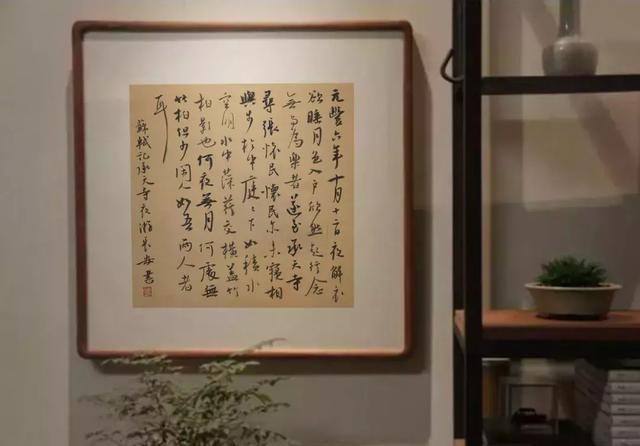 元豐六年十月十二日夜解衣
欲睡月色入戶欣然起行念
无与為樂者遂至承天寺
尋張懷民懷民亦未寢相
與步於中庭〻下如積水
空明水中藻荇交橫蓋竹
柏影也何夜無月何處無
竹柏但少閑人如吾兩人者
耳
蘇軾記承天寺夜游
書